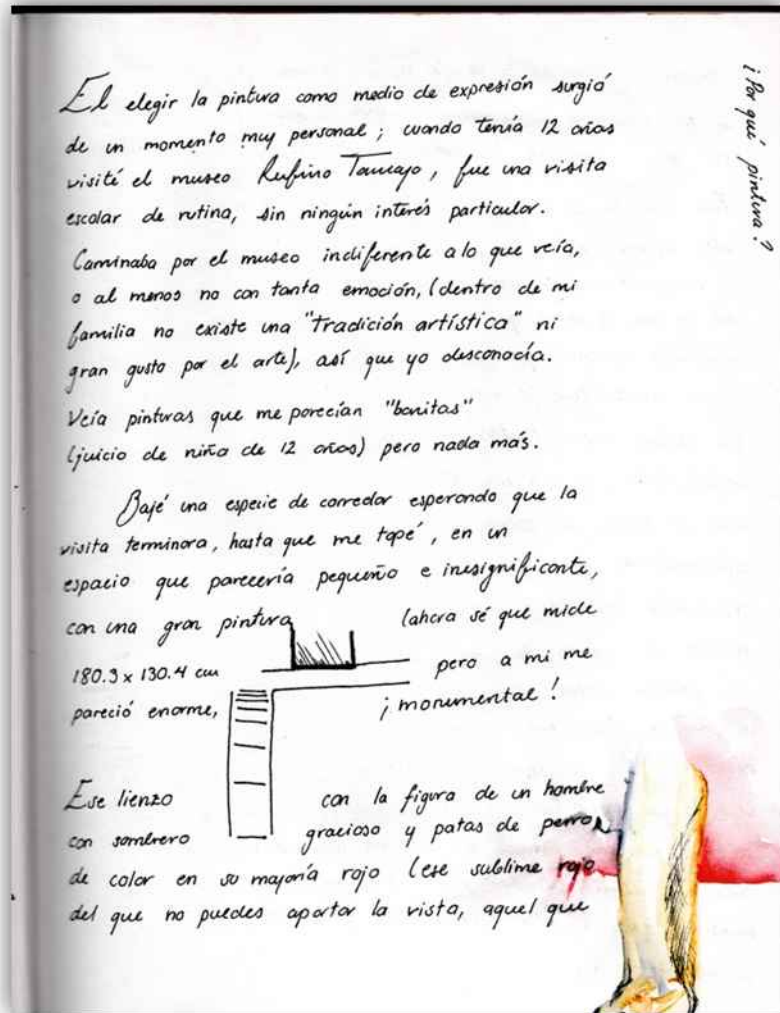 ¿Por qué pintura?
El elegir la pintura como medio de expresión surgió
de un momento muy personal; cuando tenía 12 años
visité el museo Rufino Tamayo, fue una visita
escolar de rutina, sin ningún interés particular.
Caminaba por el museo indiferente a lo que veía,
o al menos no con tanta emoción, (dentro de mi
familia no existe una "tradición artística" ni
gran gusto por el arte), así que yo desconocía.
Veía pinturas que me parecían "bonitas"
(juicio de niña de 12 años) pero nada más.
Bajé una especie de corredor esperando que la
visita terminara, hasta que me topé, en un
espacio que parecería pequeño e inesignificante,
con una gran pintura (ahora sé que mide
180.3 x 130.4 cm pero a mi me
pareció enorme, ¡monumental!
Ese lienzo con la figura de un hombre
con sombrero gracioso y patas de perro,
de color en su majoría rojo (ese sublime rojo
del que no puedes apartar la vista, aquel que